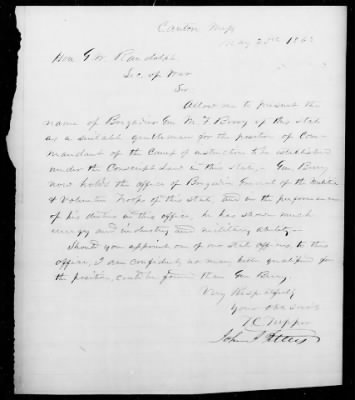 Canton Miss
May 23rd 1862
Hon G. W. Randolph
Sec. of War
Sir
Allow me to present the
name of Brigadier Gen M. F. Berry of this State
as a suitable gentleman for the position of Com-
mandant of the Camp of instruction to be established
under the Conscript Law in this State,- Gen Berry
now holds the office of Brigadier General of the Militia
& Volunteer Troops of this State, and in the performance
of his duties in this office, he has shown much
energy and industry and military ability-
Should you appoint one of our State officers to this
office, I am confident no man better qualified for
the position, could be found than Gen Berry.
Very Respectfully
Your Obt Servts
T. C. Tupper
John